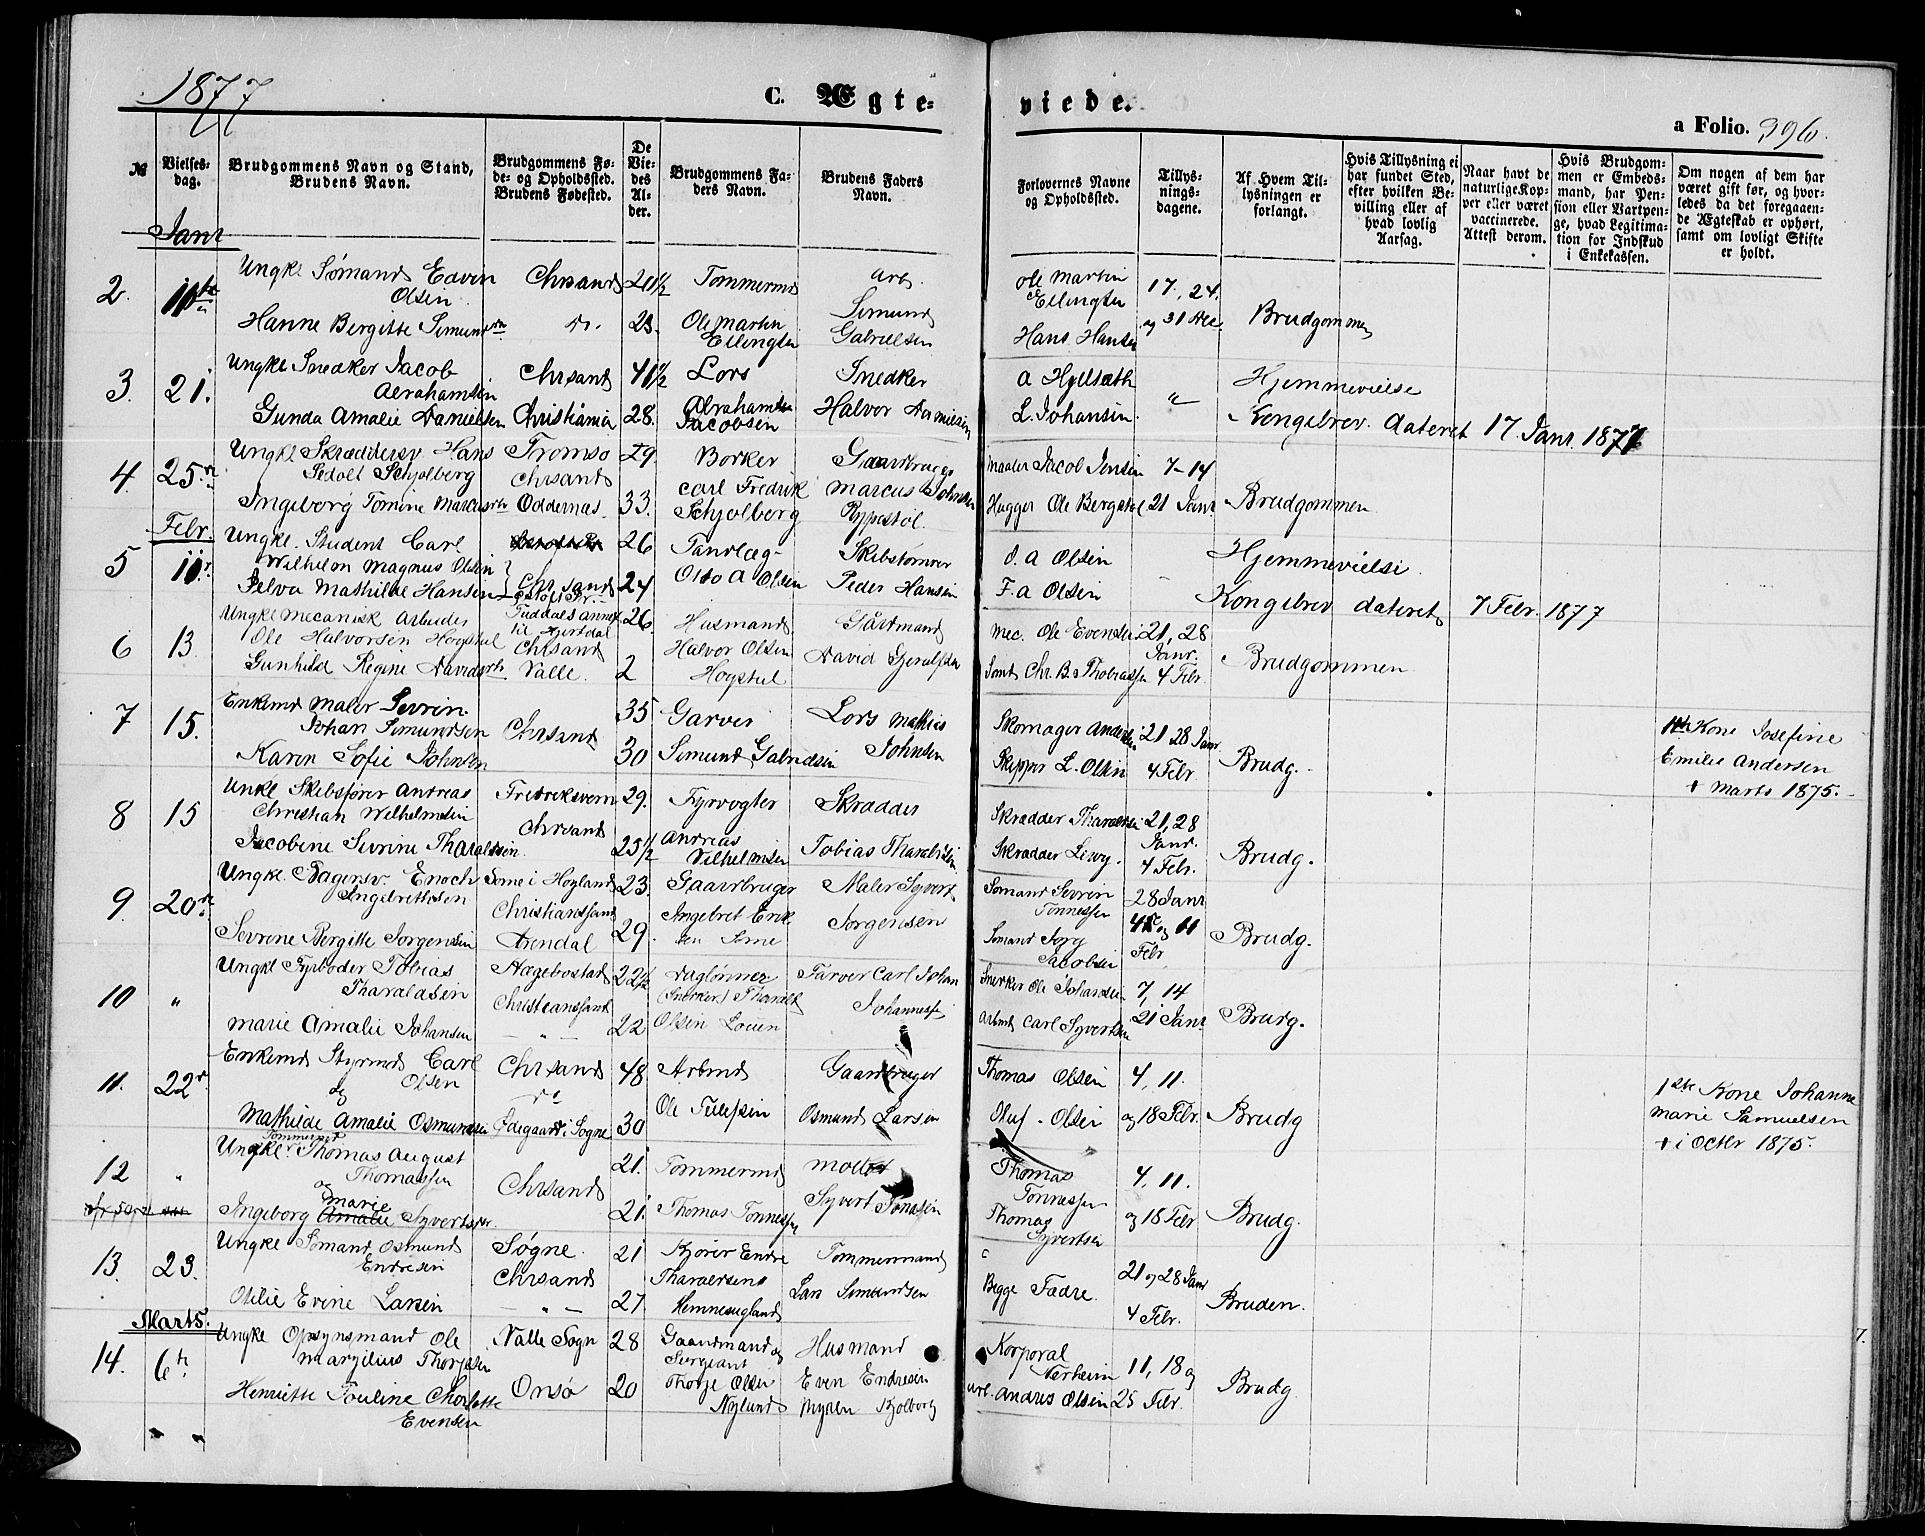 1877
C. Ægte-
viede.
a Folio. 396.
№
Vielses-
dag.
Brudgommens Navn og Stand,
Brudens Navn.
Brudgommens Fø-
de- og Opholdssted.
Brudens Fødested.
De
Vie-
des
Al-
der.
Brudgommens Fa-
ders Navn.
Brudens Faders
Navn.
Forlovernes Navne
og Opholdssted.
Tillys-
nings-
dagene.
Af Hvem Til-
lysningen er
forlangt.
Hvis Tillysning ei
har fundet Sted,
efter hvilken Be-
villing eller af
hvad lovlig
Aarsag.
Naar havt de
naturlige Kop-
per eller været
vaccinerede.
Attest derom.
Hvis Brudgom-
men er Embeds-
mand, har Pen-
sion eller Vartpen-
ge, hvad Legitima-
tion for Indskud
i Enkekassen.
Om nogen af dem har
været gift før, og hvor-
ledes da det foregaaen-
de Ægteskab er ophørt,
samt om lovligt Skifte
er holdt.
Janr
2. 11te Ungkl Sømand Edvin Chrsand Tømmermd Arb. Ole Martin 17, 24.
Olsen Simund Ellingsen
Hanne Bergitte Simundsdn do. 23. Ole Martin Gabrielsen Hans Hansen og 31 Dec. Brudgommen
Ellingsen
3. 21. Ungkl Snedker Jacob Chrsand 41 1/2 Lors Snedker A Hyllsæth " Hjemmevielse
Abrahamsen
Gunda Amalie Danielsen Christiania 28. Abrahamsen Halvor Danielsen L. Johansen. Kongebrev dateret 17. Janr. 1877
Jacobsen
4. 25de Ungkl Skræddersv Hans Tromsø 29. Bødker Gaardbruger Maaler Jacob Jensen 7-14
Schjolberg Chrsand Carl Fredrik Marcus
Ingeborg Tomine Marcusdtr Oddernæs. 33. Schjolberg Rypestøl. Hugger Ole Bergstøl 21 Janr. Brudgommen
Febr.
5 11. Ungkl. Student Carl 26 Tandlæg- Skibstømrer O. A Olsen Hjemmevielse
Wilhelm Magnus Olsen Chrsand
Mathilde Hansen 24 Otto A Olsen Peder Hansen F. A Olsen Kongebrev dateret 7 Febr. 1877
6 13 Ungkl Mecanisk Arbeider Tuddals annex 26. Husmand Gårdmand Mec. Ole Evensen 21, 28
Ole Halvorsen Høgstul til Hjertdal Halvor Olsen Janr.
Chrsand
Gunhild Regine Davidsdtr Valle. 2 Høgstul David Chr. B. Thobiassen 4 Febr. Brudgommen
7 15. Enkemd Maler Sevrin 35 Garver Lors Mathias Skomager Andersen 21 28 Janr 1ste Kone Josefine
Johan Simundsen Chrsand
Karen Sofie Johnsen 30 Simund Gabrielsen Johnsen Skipper L. Olsen 4 Febr Brudg. Emilie Andersen
† Marts 1875.
8 15 Ungkl Skibsfører Andreas Fredriksvern 29. Fyrvogter Skrædder Skrædder Tharaldsen 21, 28
Christian Wilhelmsen Chrsand Janr.
Jacobine Sevrine Tharaldsen. 25 1/2 Andreas Tobias Tharaldsen Skrædder Levy. 4 Febr. Brudg.
Vilhelmsen
9. 20de Ungkl. Bagersv. Enoch Sømme i Høyland 23. Gaardbruger Maler Syvert Sømand Sevrin 28 Janr
Ingebrethsen Christianssand Ingebret Tønnessen
Sevrine Bergitte Jorgensen Arendal 29. Jorgensen Sømand Jørg 4de og 11 Brudg.
Jacobsen Febr
10 " Ungkl Fyrbøder Tobias Hægebostad 22 1/2 Daglønner Farver Carl Johan Snedker Ole Johansen 7, 14
Tharaldsen Christianssand (Snedker) Tharald Johannessen
Marie Amalie Johansen " 22 Olsen Arbmd Carl Syvertsen 21 Janr Brudg.
11. 22d Enkemd Styrmd Carl Chrsand 48 Arbmd Gaardbruger Thomas Olsen 4, 11. 1ste Kone Johanne
Olsen
og do
Mathilde Amalie Osmundsen Ødegaard i Søgne 30 Ole Osmund Larsen Oluf Olsen og 18 Febr. Brudg Marie Samuelsen
† i Octbr 1875.
12 " Ungkl. Tømmermd Thomas August 21. Tømmermd Thomas 4, 11.
Thomassen Chrsand Tønnessen
og Marie
Ingeborg Amalie Syvertsen 21. Thomas Tønnessen Syvert Thomas og 18 Febr Brudg.
Syvertsen
13. 23. Ungkl Sømand Osmund Søgne. 21 Kjører Endre Tømmermand
Endresen Chrsand Tharaldsens Begge Fædre. 21 og 28 Janr
Otilie Evine Larsen — " — 27. Hemnesugland Lars Simundsen 4 Febr. Bruden.
Marts.
14. 6te Ungkl Opsynsmand Ole Valle Sogn 28 Gaardmand og Husmand Korporal
Marzilius Thorjesen Sergeant Verheim 11, 18 og
Henriette Pouline Charlotte Onsø 20 Thorje Olsen Even Endresen Andres Olsen 25 Febr. Brudg.
Evensen Nylund Myren Kjølberg
" "